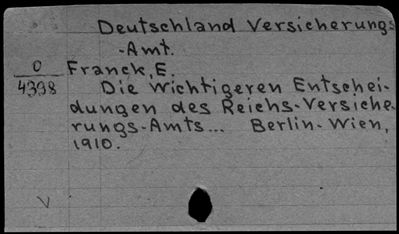 Deutschland Versicherungs
-Amt.
0 Franck, E.
4398 Die wichtigeren Entschei-
dungen des Reichs-Versiche-
rungs-Amts... Berlin-Wien,
1910.
V